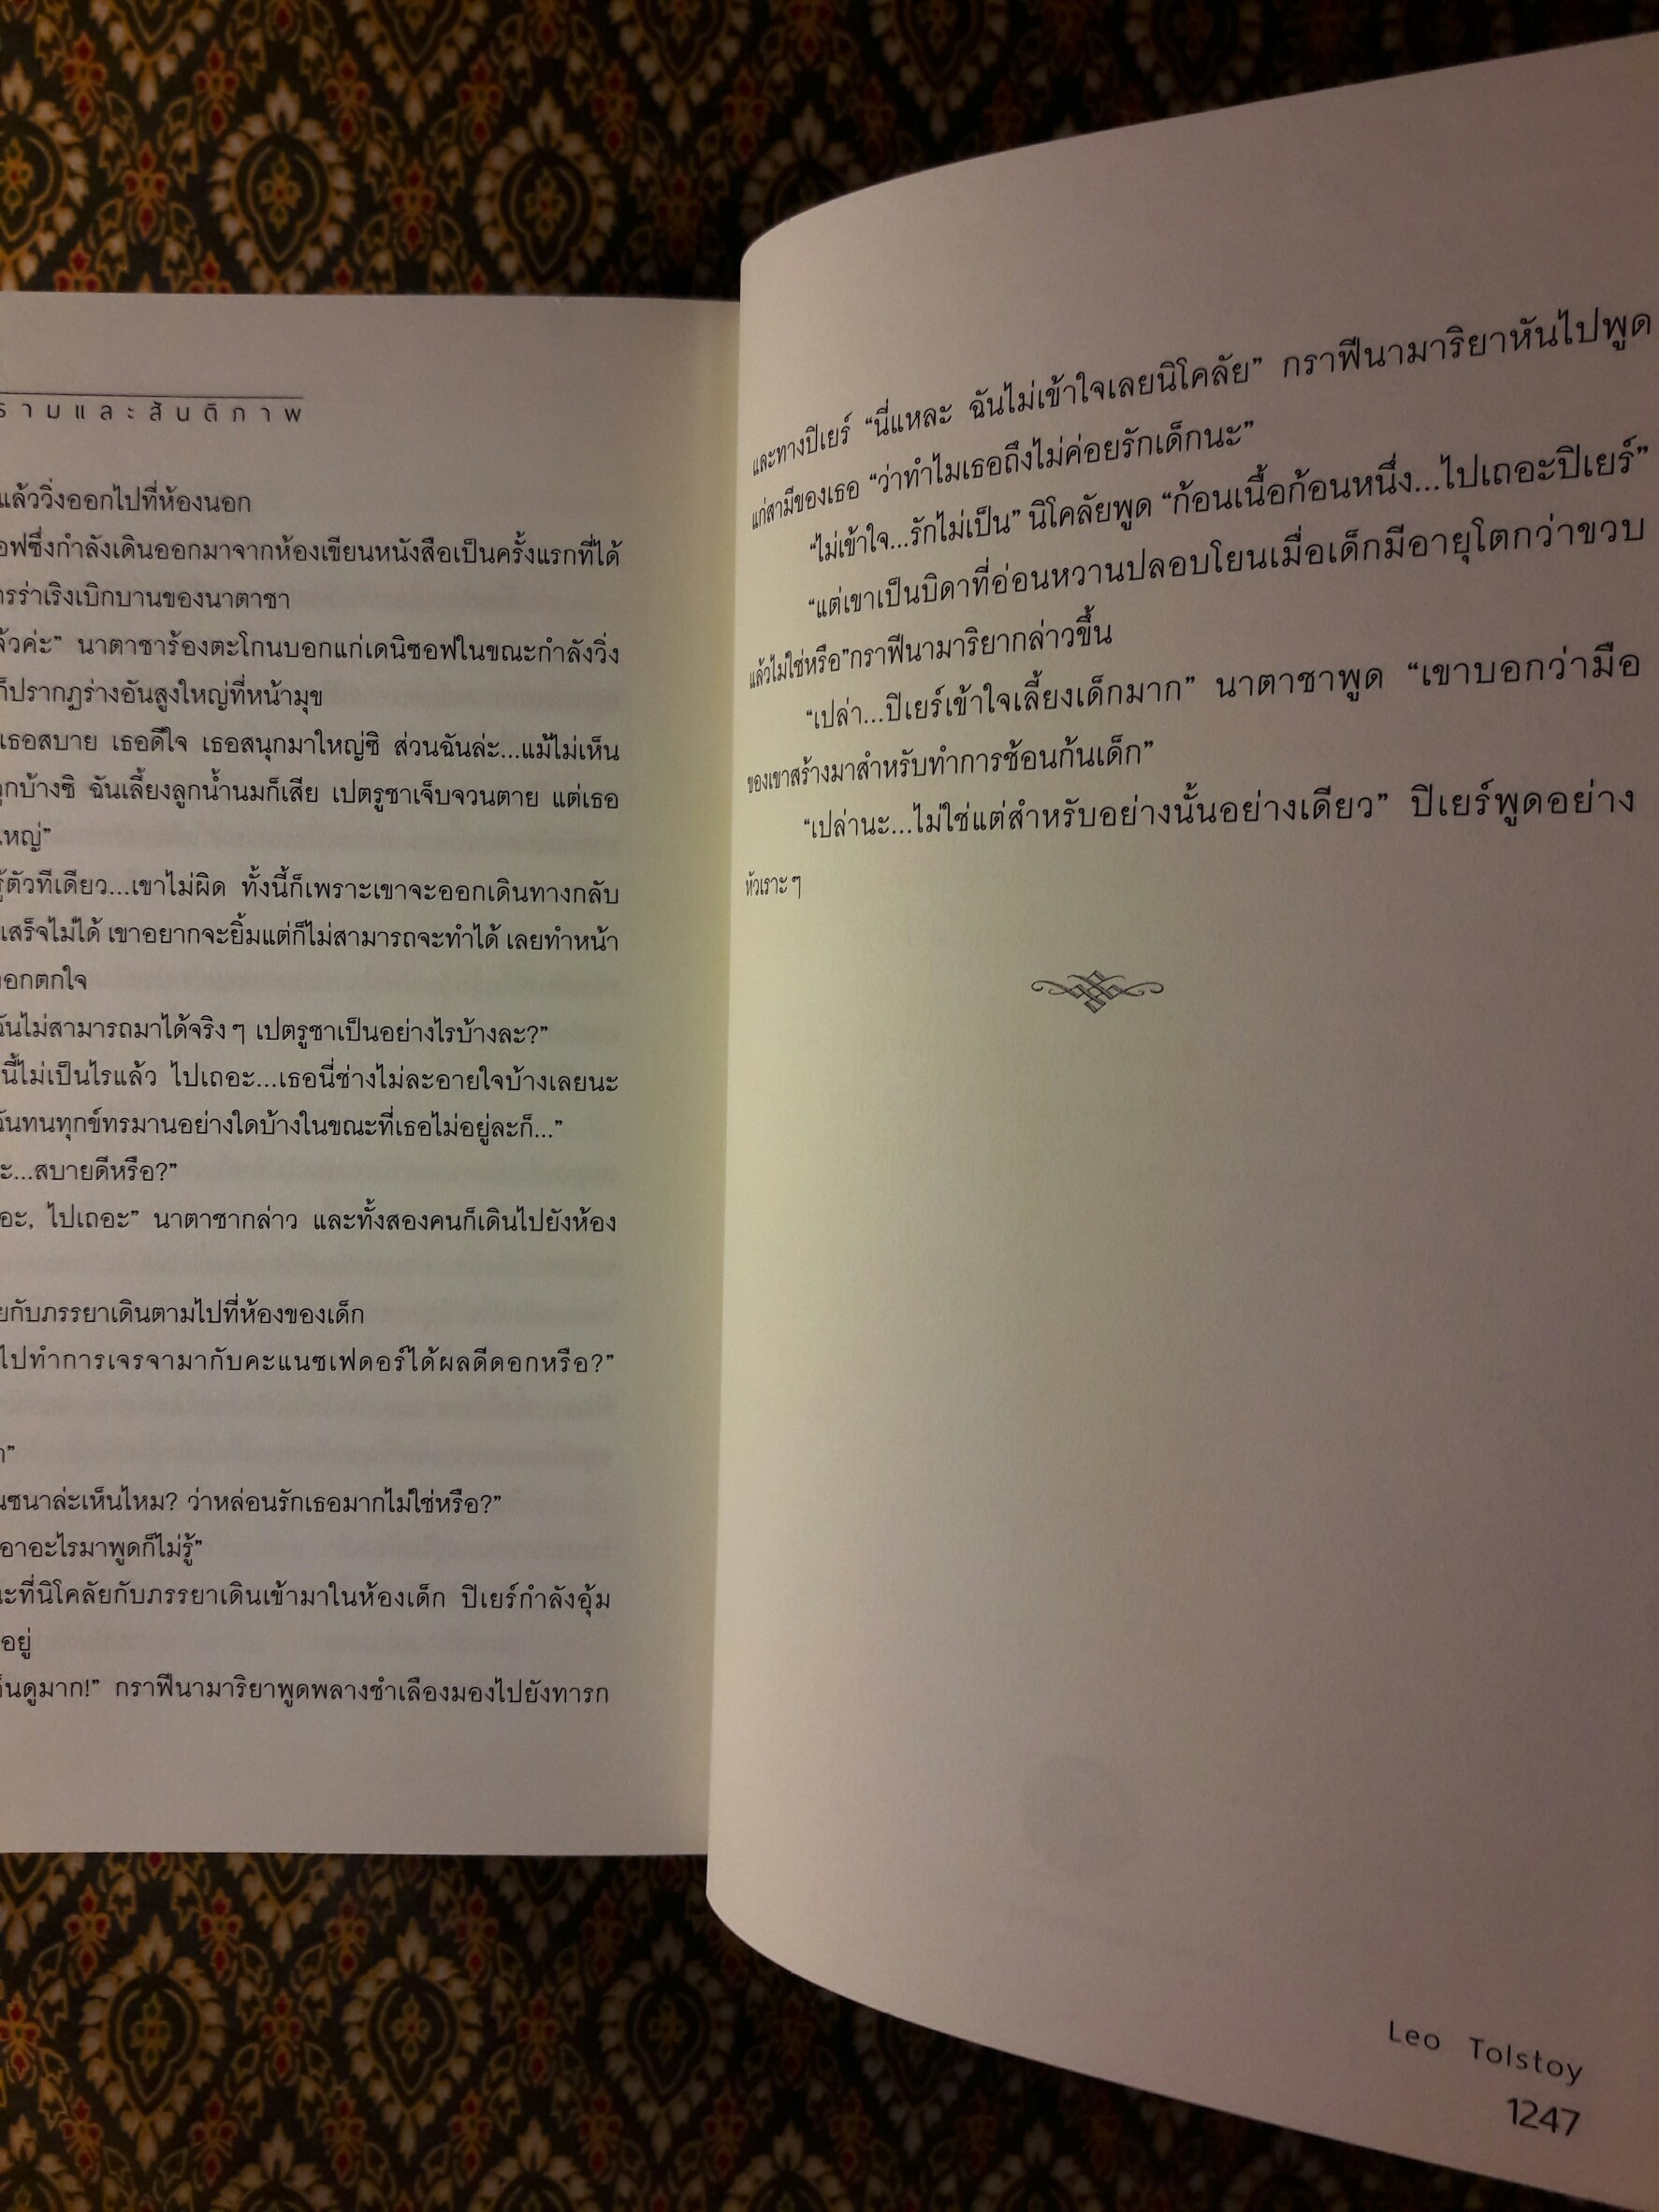 รามและสันติภาพ
แล้ววิ่งออกไปที่ห้องนอก
อฟซึ่งกำลังเดินออกมาจากห้องเขียนหนังสือเป็นครั้งแรกที่ได้
ารร่าเริงเบิกบานของนาตาชา
ล้วค่ะ” นาตาชาร้องตะโกนบอกแก่เดนิซอฟในขณะกำลังวิ่ง
ก็ปรากฏร่างอันสูงใหญ่ที่หน้ามุข
เธอสบาย เธอดีใจ เธอสนุกมาใหญ่ซิ ส่วนฉันล่ะ...แม้ไม่เห็น
ูกบ้างซิ ฉันเลี้ยงลูกน้ำนมก็เสีย เปตรูชาเจ็บจวนตาย แต่เธอ
ใหญ่”
รู้ตัวทีเดียว...เขาไม่ผิด ทั้งนี้ก็เพราะเขาจะออกเดินทางกลับ
เสร็จไม่ได้ เขาอยากจะยิ้มแต่ก็ไม่สามารถจะทำได้ เลยทำหน้า
อกตกใจ
ฉันไม่สามารถมาได้จริงๆ เปตรูชาเป็นอย่างไรบ้างละ?”
นี้ไม่เป็นไรแล้ว ไปเถอะ...เธอนี่ช่างไม่ละอายใจบ้างเลยนะ
ฉันทนทุกข์ทรมานอย่างใดบ้างในขณะที่เธอไม่อยู่ละก็...”
ะ...สบายดีหรือ?”
อะ, ไปเถอะ” นาตาชากล่าว และทั้งสองคนก็เดินไปยังห้อง
ยกับภรรยาเดินตามไปที่ห้องของเด็ก
ไปทำการเจรจามากับคะแนซเฟดอร์ได้ผลดีดอกหรือ?”
า”
นซนาล่ะเห็นไหม? ว่าหล่อนรักเธอมากไม่ใช่หรือ?”
อาอะไรมาพูดก็ไม่รู้”
ณะที่นิโคลัยกับภรรยาเดินเข้ามาในห้องเด็ก ปิเยร์กำลังอุ้ม
อยู่
็นดูมาก!” กราฟีนามาริยาพูดพลางชำเลืองมองไปยังทารก
และทางปิเยร์ “นี่แหละ ฉันไม่เข้าใจเลยนิโคลัย” กราฟีนามาริยาหันไปพูด
แก่สามีของเธอ “ว่าทำไมเธอถึงไม่ค่อยรักเด็กนะ”
“ไม่เข้าใจ...รักไม่เป็น” นิโคลัยพูด “ก้อนเนื้อก้อนหนึ่ง...ไปเถอะปิเยร์”
“แต่เขาเป็นบิดาที่อ่อนหวานปลอบโยนเมื่อเด็กมีอายุโตกว่าขวบ
แล้วไม่ใช่หรือ”กราฟีนามาริยากล่าวขึ้น
“เปล่า...ปิเยร์เข้าใจเลี้ยงเด็กมาก” นาตาชาพูด “เขาบอกว่ามือ
ของเขาสร้างมาสำหรับทำการช้อนก้นเด็ก”
“เปล่านะ...ไม่ใช่แต่สำหรับอย่างนั้นอย่างเดียว” ปิเยร์พูดอย่าง
หัวเราะๆ
Leo Tolstoy
1247